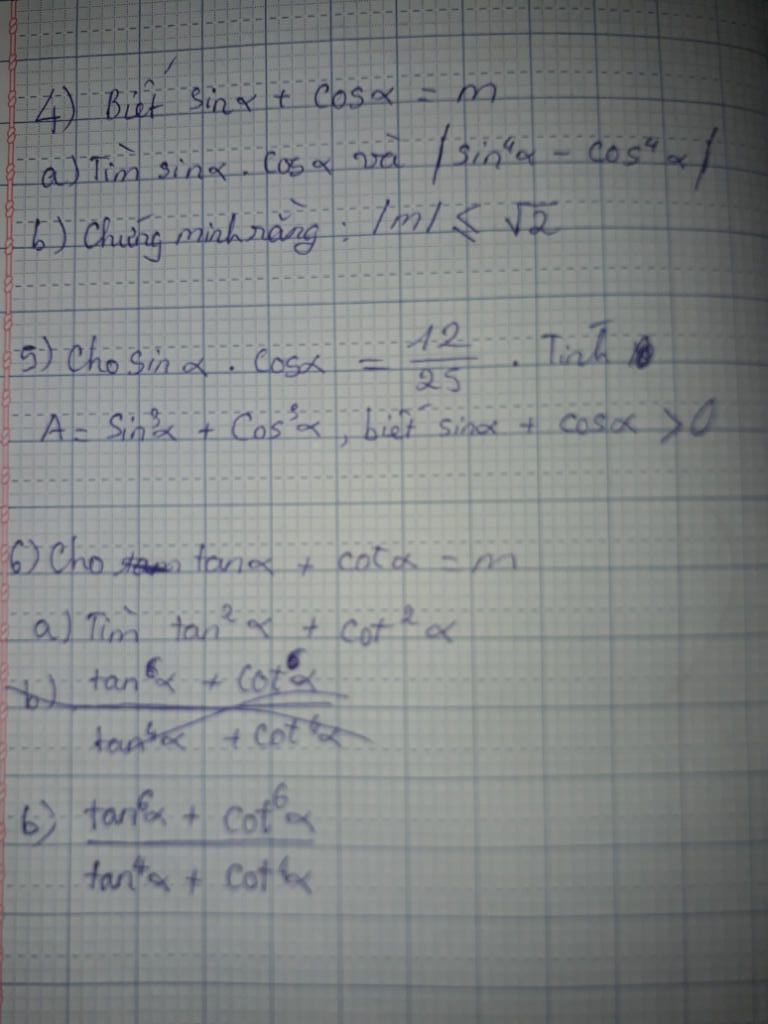 4) Biết sinα + cosα = m
a) Tìm sinα . cosα và |sin⁴α - cos⁴α|
b) Chứng minh rằng : |m| ≤ √2
5) Cho sinα . cosα = 12/25 . Tính
A = sin³α + cos³α , biết sinα + cosα > 0
6) Cho tanα + cotα = m
a) Tìm tan²α + cot²α
b) tan⁶α + cot⁶α
tan⁴α + cot⁴α
b) tan⁶α + cot⁶α
tan⁴α + cot⁴α